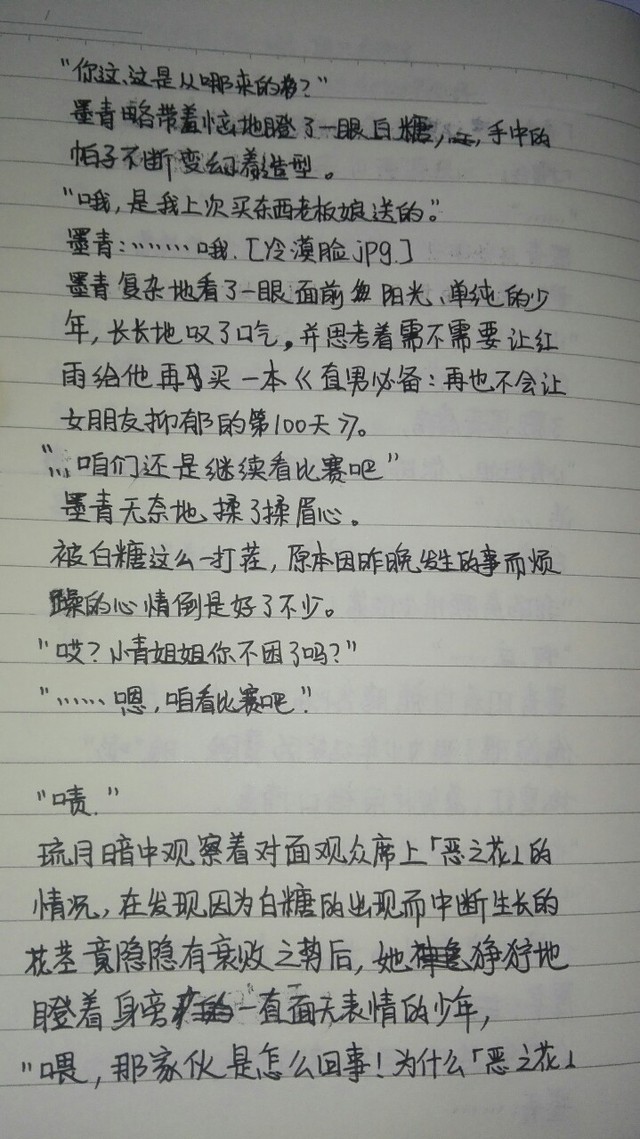 "你这、这是从哪来的?"
墨青略带羞恼地瞪了一眼白糖,手中的
帕子不断变幻着造型。
"哦,是我上次买东西老板娘送的。"
墨青:………哦.[冷漠脸.jpg.]
墨青复杂地看了一眼面前阳光、单纯的少
年,长长地叹了口气,并思考着需不需要让红
雨给他再买一本《直男必备:再也不会让
女朋友抑郁的第100天》。
"…咱们还是继续看比赛吧"
墨青无奈地揉了揉眉心。
被白糖这么一打茬,原本因昨晚发生的事而烦
躁的心情倒是好了不少。
"哎?小青姐姐你不困了吗?"
"……嗯,咱看比赛吧"
"啧."
琉月暗中观察着对面观众席上「恶之花」的
情况,在发现因为白糖的出现而中断生长的
花茎竟隐隐有衰败之势后,她狰狞地
瞪着身旁一直面无表情的少年,
"喂,那家伙是怎么回事!为什么「恶之花」